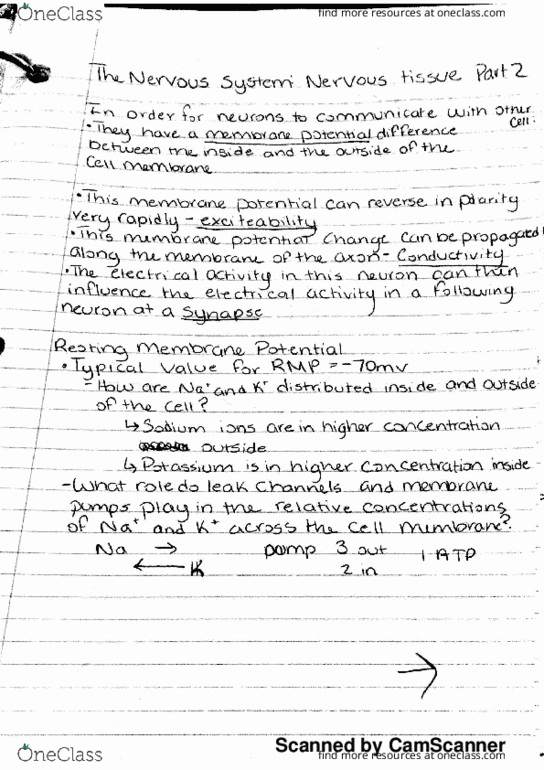 OneClass
find more resources at oneclass.com
The Nervous System: Nervous tissue Part 2
In order for neurons to communicate with other
cell:
• They have a membrane potential difference
between the inside and the outside of the
cell membrane
• This membrane potential can reverse in plarity
very rapidly - exciteability
• This membrane potential change can be propagated
along the membrane of the axon - Conductivity
• The electrical activity in this neuron can than
influence the electrical activity in a following
neuron at a synapse
Resting Membrane Potential
• Typical value for RMP = -70mv
- How are Na⁺ and K⁺ distributed inside and outside
of the cell?
↳ Sodium ions are in higher concentration
outside
↳ Potassium is in higher concentration inside
- What role do leak channels and membrane
pumps play in the relative concentrations
of Na⁺ and K⁺ across the cell membrane?
Na → pamp 3 out 1 ATP
← K 2 in
→
Scanned by CamScanner
OneClass
find more resources at oneclass.com